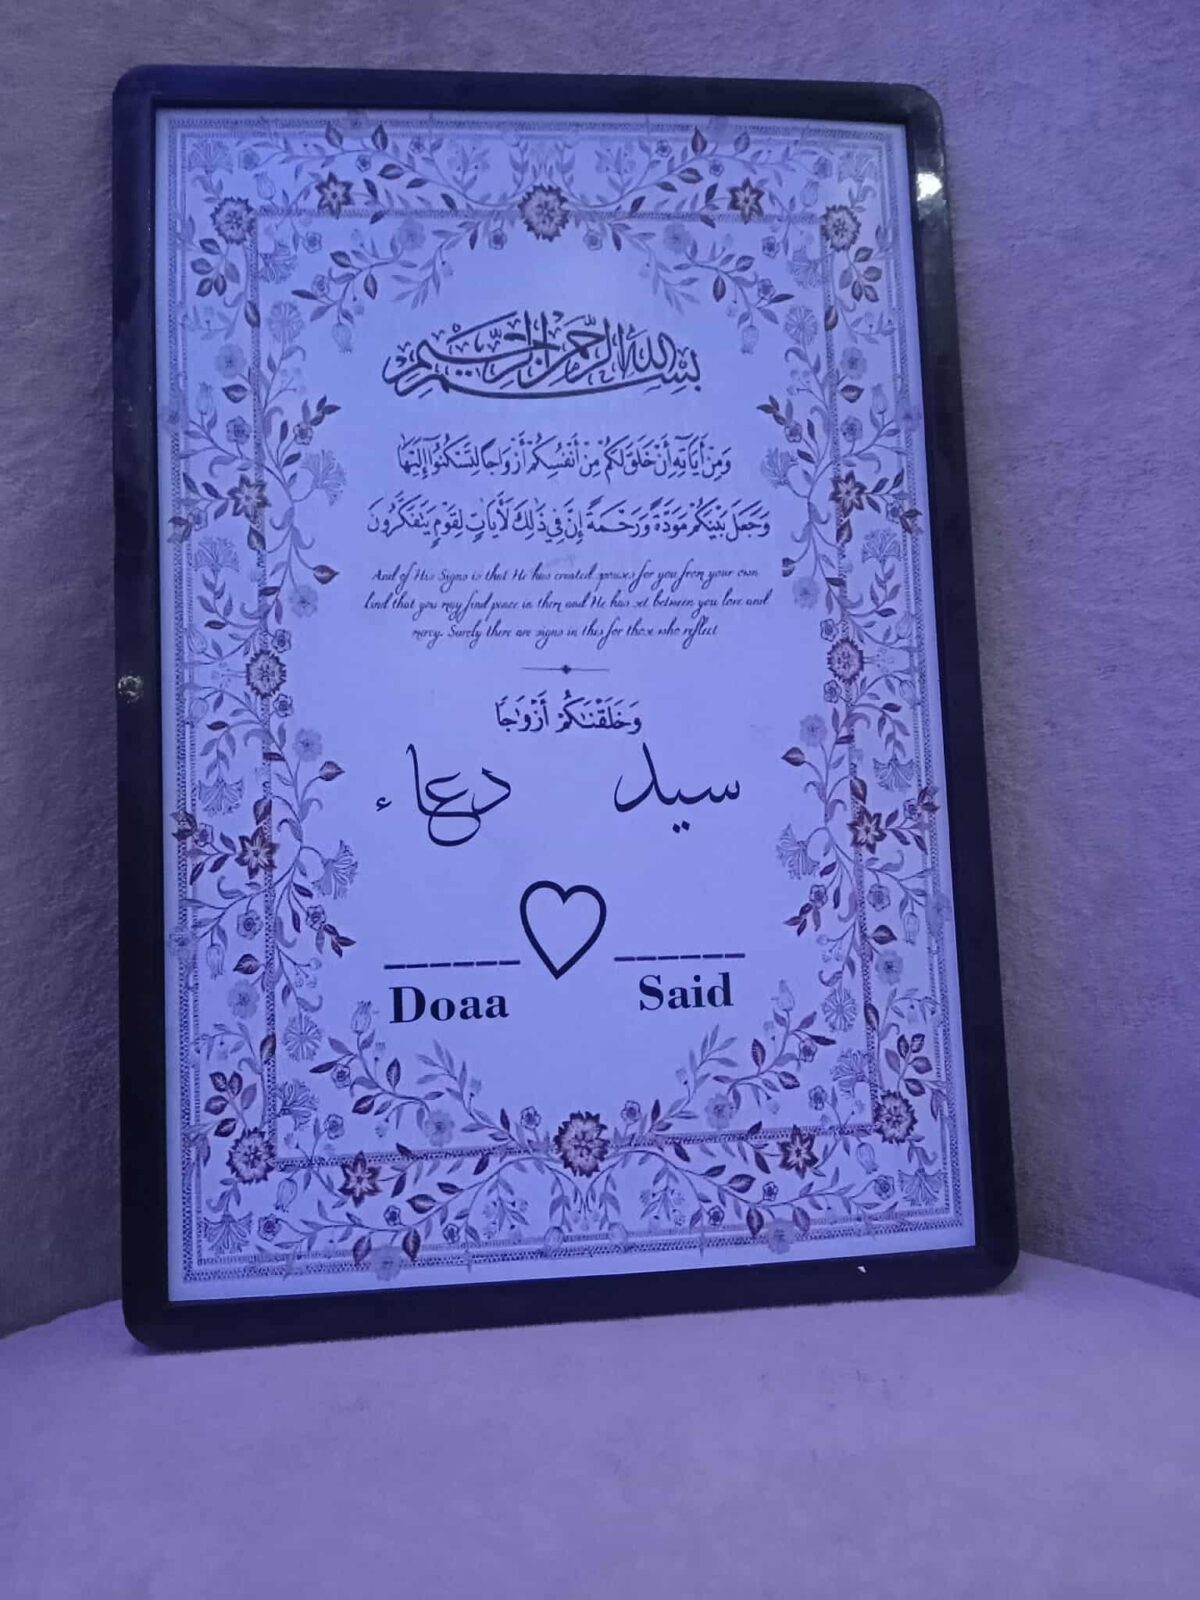 بسم الله الرحمن الرحيم
وَمِنْ آيَاتِهِ أَنْ خَلَقَ لَكُمْ مِنْ أَنْفُسِكُمْ أَزْوَاجًا لِتَسْكُنُوا إِلَيْهَا
وَجَعَلَ بَيْنَكُمْ مَوَدَّةً وَرَحْمَةً إِنَّ فِي ذَٰلِكَ لَآيَاتٍ لِقَوْمٍ يَتَفَكَّرُونَ
And of His Signs is that He has created spouses for you from your own
kind that you may find peace in them and He has set between you love and
mercy. Surely there are signs in this for those who reflect
وَخَلَقْنَاكُمْ أَزْوَاجًا
سيد دعاء
Doaa Said